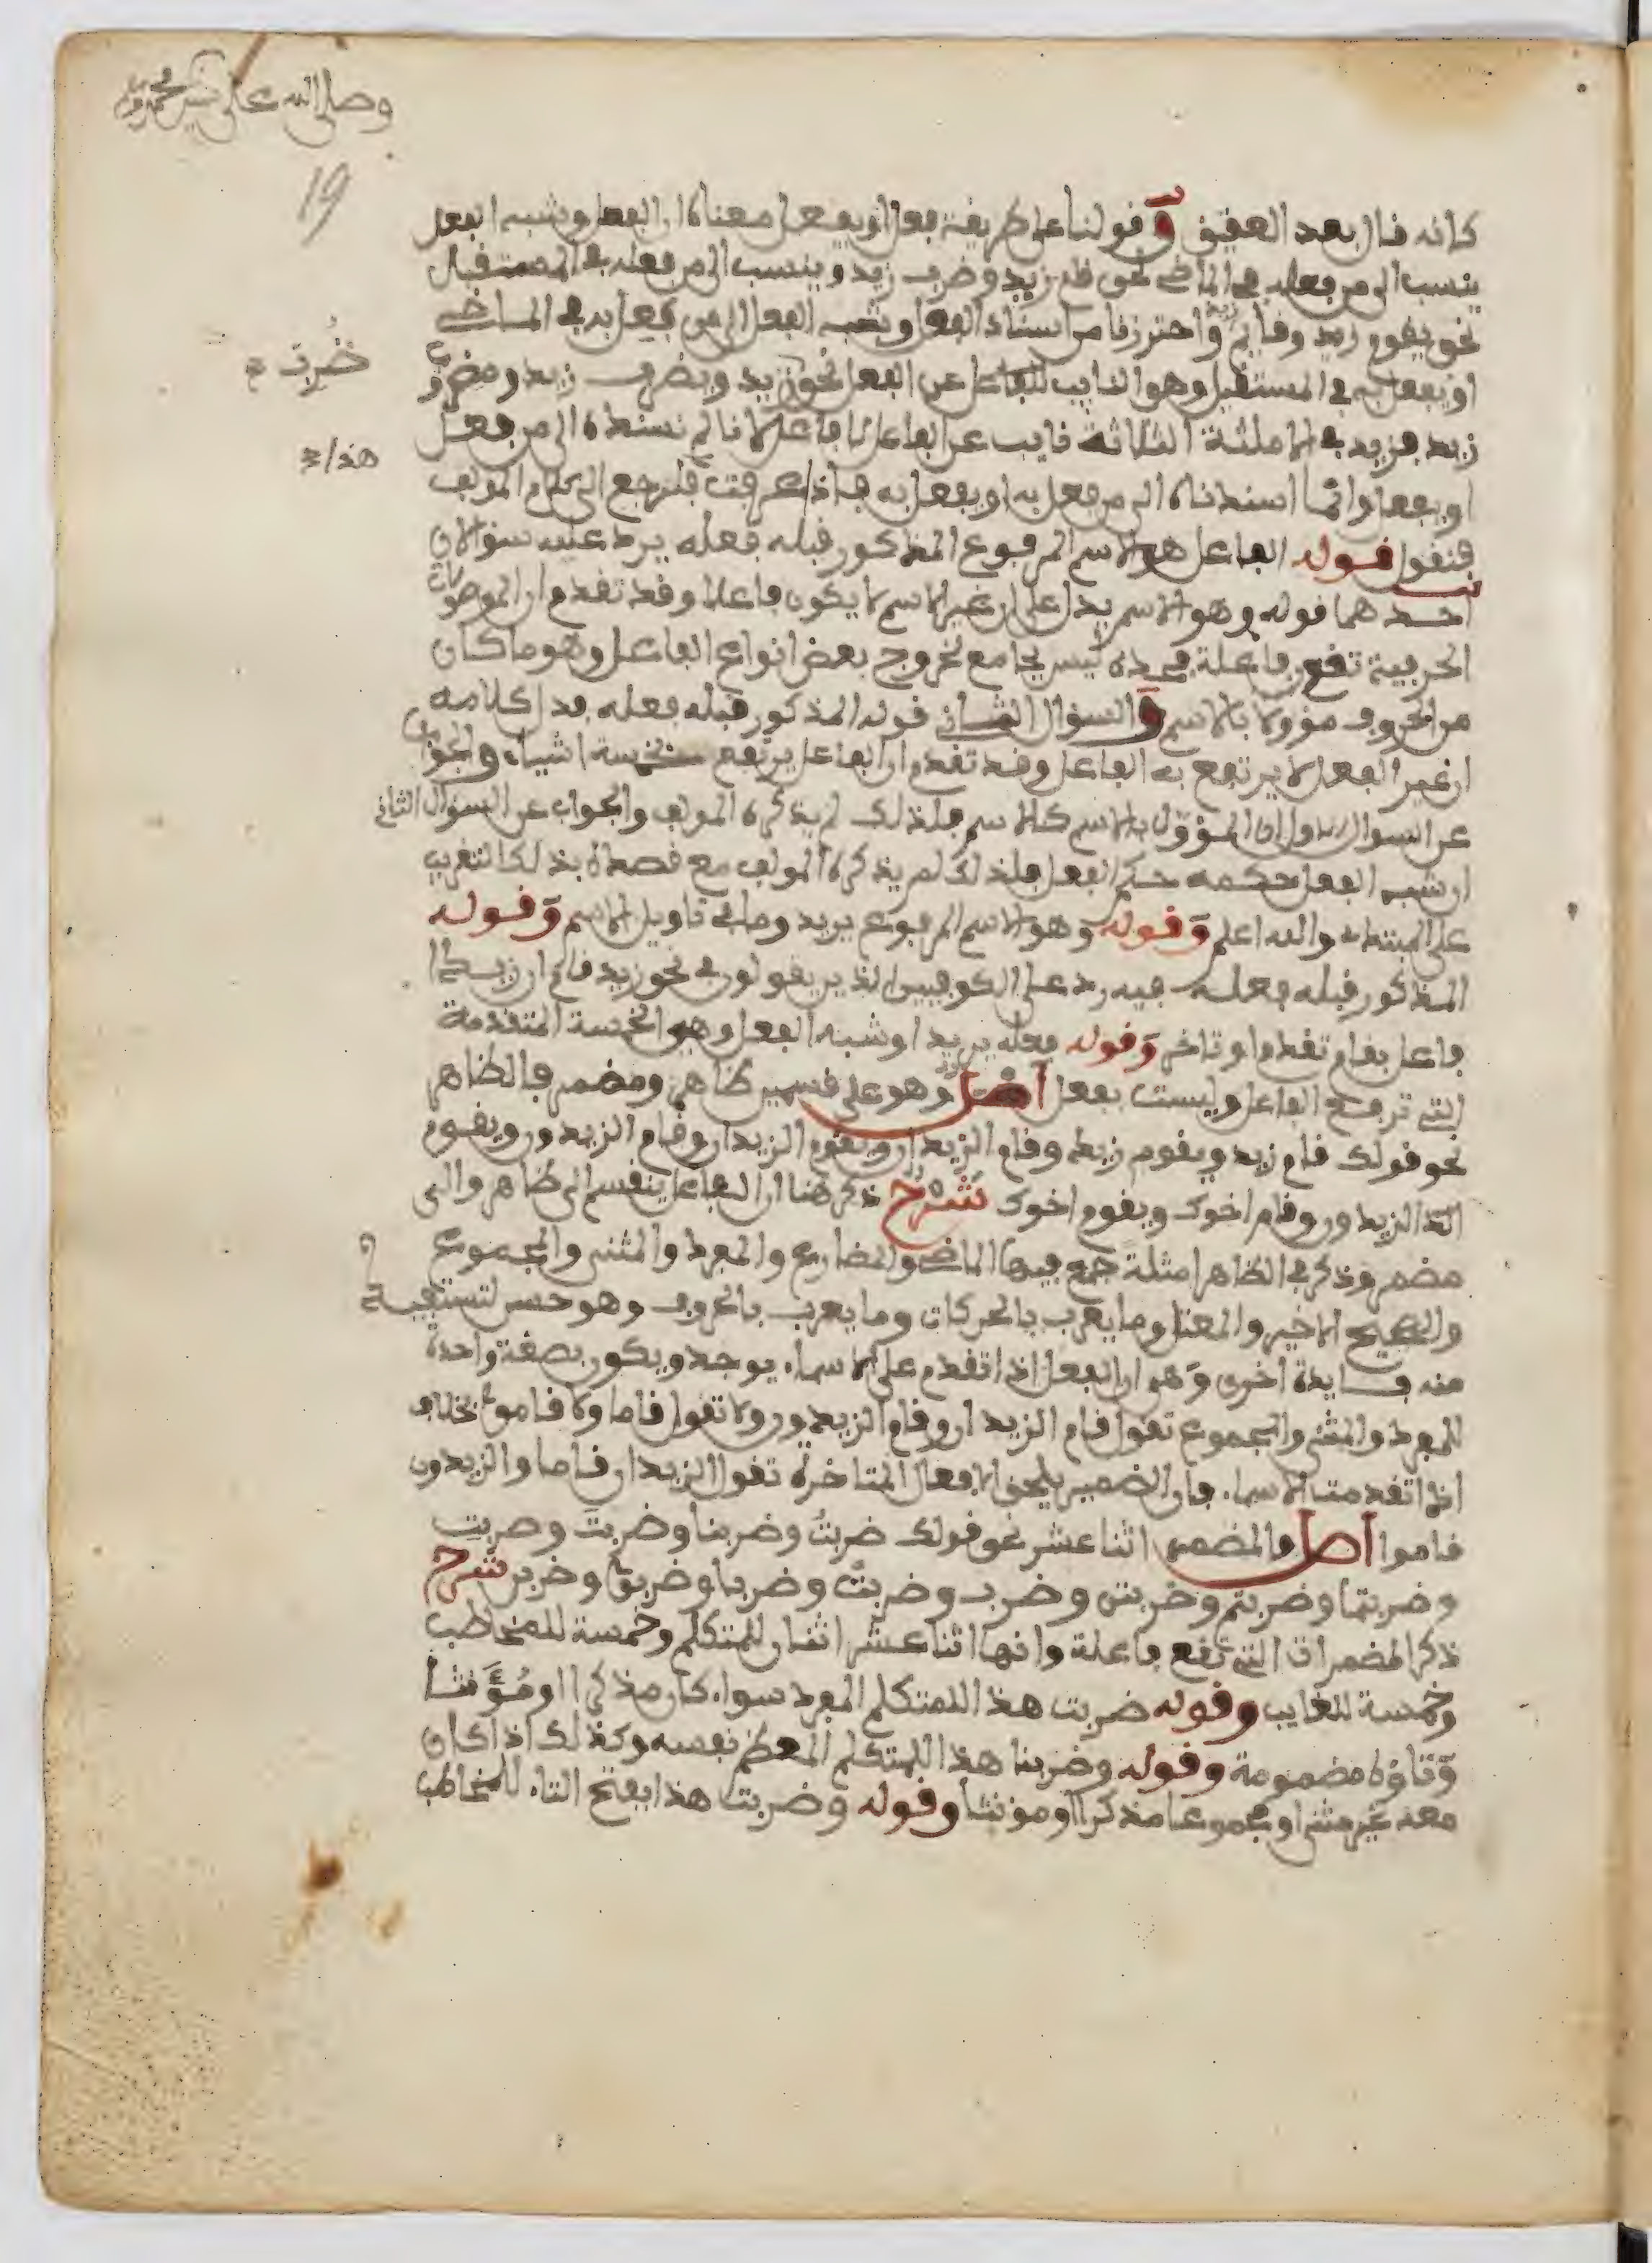 وصلى الله على سيدنا محمد وآله
19
كانه قال بعد الحقيق وقولنا على طريقة فعل او يفعل معناه ان الفعل وشبه الفعل
ينسب الى من فعله في الماضي نحو قام زيد وضرب زيد وينسب الى من يفعله في المستقبل
نحو يقوم زيد وقايم زيد واحترزنا من اسناد الفعل وشبه الفعل الى من فعل به في الماضي
ضُرِبَ صح
او يفعل به في المستقبل وهو النايب للفاعل عن الفعل نحو زيد ويضرب زيد ومضروب
زيد فزيد في الامثلة الثلاثة نايب عن الفاعل لا فاعلا لانا لم نسنده الى من فعل
هذا صح
او يفعل وانما اسندناه الى من فعل به او يفعل به فاذا عرفت فلنرجع الى كلام المولف
فنقول قوله الفاعل هو الاسم المرفوع المذكور قبله فعله يرد عليه سؤالان
احدهما قوله وهو الاسم يدل على ان غير الاسم لا يكون فاعلا وقد تقدم ان الموصولات
الحرفية تقع فاعلة فحده ليس بجامع لخروج بعض انواع الفاعل وهو ما كان
من الحروف مؤولا بالاسم والسؤال الثاني قوله المذكور قبله فعله فدل كلامه
ان غير الفعل لا يرتفع به الفاعل وقد تقدم ان الفاعل يرتفع بخمسة اشياء والجواب
عن السوال الاول ان المؤول بالاسم كالاسم فلذلك لم يذكره المولف والجواب عن السوال الثاني
ان شبه الفعل حكمه حكم الفعل فلذلك لم يذكره المولف مع قصده بذلك التقريب
على المبتدي والله اعلم وقوله وهو الاسم المرفوع يريد وما في تاويل الاسم وقوله
المذكور قبله فعله فيه رد على الكوفيين الذين يقولون في نحو زيد قام ان زيدا
فاعل بقام تقدم او تاخر وقوله فعله يريد او شبه الفعل وهي الخمسة المتقدمة
التي ترفع الفاعل وليست بفعل اصل وهو على قسمين ظاهر ومضمر فالظاهر
نحو قولك قام زيد ويقوم زيد وقام الزيدان ويقوم الزيدان وقام الزيدون ويقوم
الزيدون وقام اخوك ويقوم اخوك شرح ذكر هنا ان الفاعل ينقسم الى ظاهر والى
مضمر وذكر في الظاهر امثلة جمع فيها الماضي والمضارع والمفرد والمثنى والمجموع
والصحيح الاخير والمعتل وما يعرب بالحركات وما يعرب بالحروف وهو حسن لتستفيد
منه فايدة اخرى وهي ان الفعل اذا تقدم على الاسماء يوحد ويكون بصفة واحدة
للمفرد والمثنى والمجموع تقول قام الزيدان وقام الزيدون ولا تقول قاما ولا قاموا بخلاف
اذا تقدمت الاسماء فان الضمير يلحق الافعال المتاخرة تقول الزيدان قاما والزيدون
قاموا اصل والمضمر اثنا عشر نحو قولك ضربتُ وضربنا وضربتَ وضربت
وضربتما وضربتم وضربتن وضرب وضربتْ وضربا وضربوا وضربن شرح
ذكر المضمرات التي تقع فاعلة وانها اثنا عشر اثنان للمتكلم وخمسة للمخاطب
وخمسة للغايب وقوله ضربت هذا للمتكلم المفرد سواء كان مذكرا او مُؤَنثا
وتاؤه مضمومة وقوله وضربنا هذا للمتكلم المعظم نفسه وكذلك اذا كان
معه غيره مثنى او مجموعا مذكرا او مونثا وقوله وضربت هذا بفتح التاء للمخاطب